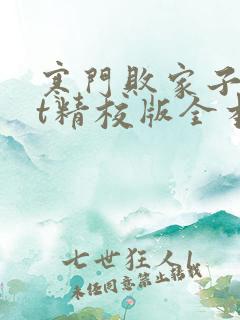 寒門敗家子
t精校版全本
七世狂人l
未经同意禁止转载